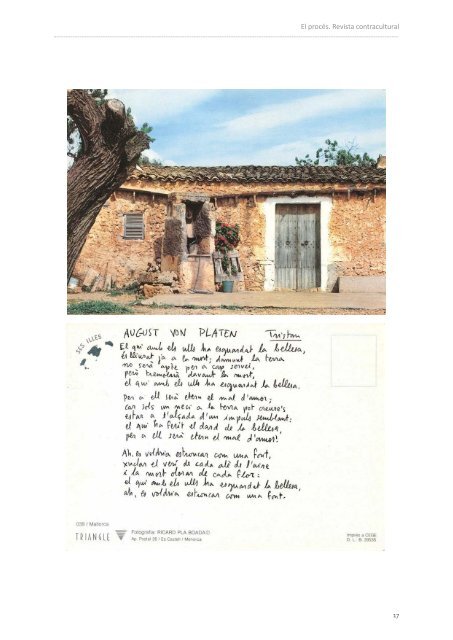 El procés. Revista contracultural
SES ILLES
AUGUST VON PLATEN Tristan
El qui amb els ulls ha esguardat la bellesa,
és lliurat ja a la mort; damunt la terra
no serà apte per a cap servei,
però tremolarà davant la mort,
el qui amb els ulls ha esguardat la bellesa.
Per a ell serà etern el mal d'amor;
car sols un neci a la terra pot creure's
estar a l'alçada d'un impuls semblant;
el qui ha ferit el dard de la bellesa,
per a ell serà etern el mal d'amor!
Ah, es voldria estroncar com una font,
xuclar el verí de cada alè de l'aire
i la mort olorar de cada flor:
el qui amb els ulls ha esguardat la bellesa,
ah, es voldria estroncar com una font.
/ Mallorca
TRIANGLE
Fotografia: RICARD PLA BOADA
Ap. Postal / Es Castell / Menorca
Imprès a CEGE
D. L. B.
17